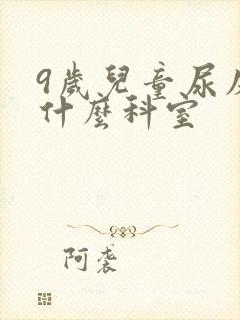 9歲兒童尿
什麼科室
阿袭